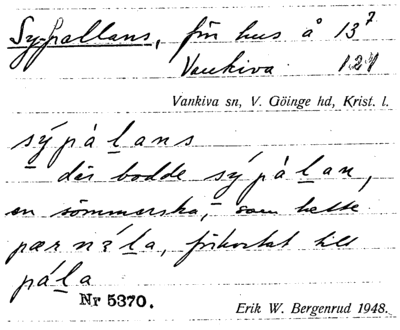 Sypallans, för hus å 13⁷
Vankiva 121
Vankiva sn, V. Göinge hd, Krist. l.
sýpàlans
— där bodde sýpàlan,
en sömmerska, som hette
pærnila, förkortat till
pála
Nr 5370.
Erik W. Bergenrud 1948.